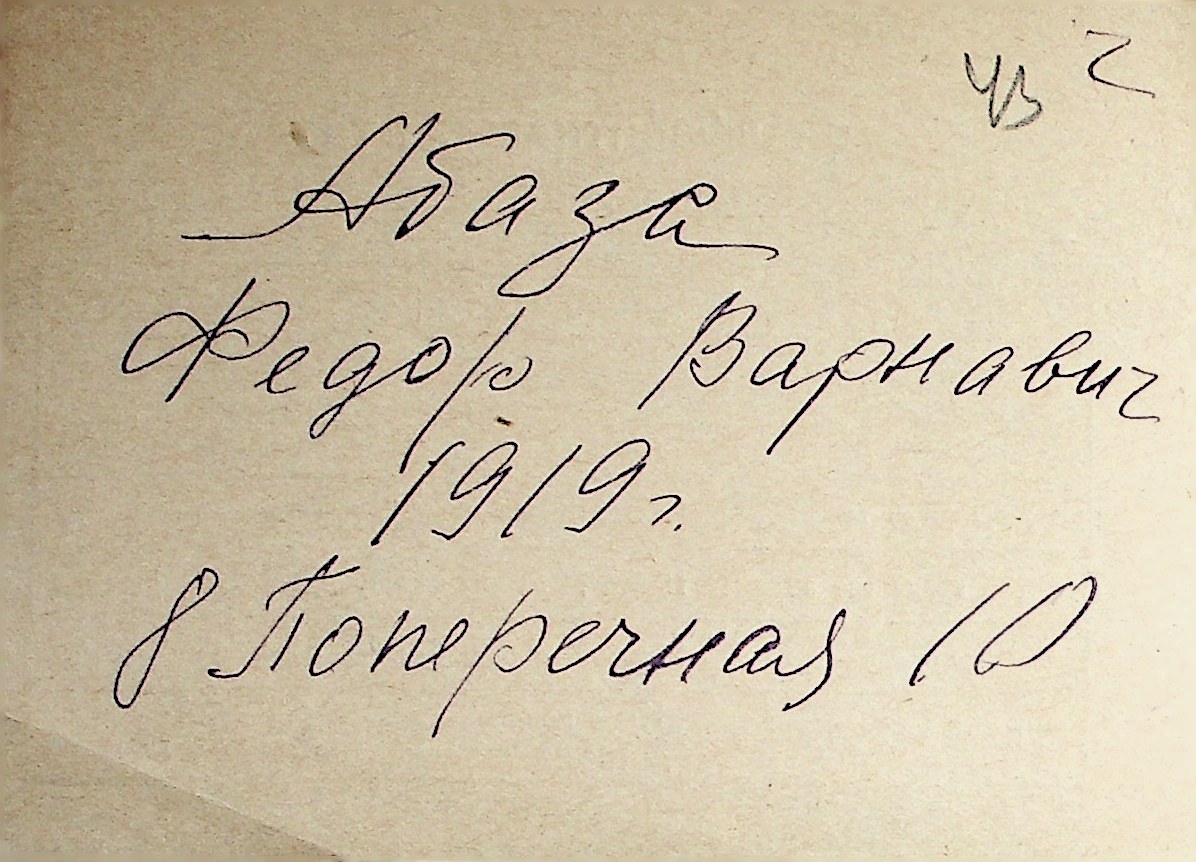 Абаза
Федор Варнавич
1919 г.
8 Поперечная 10